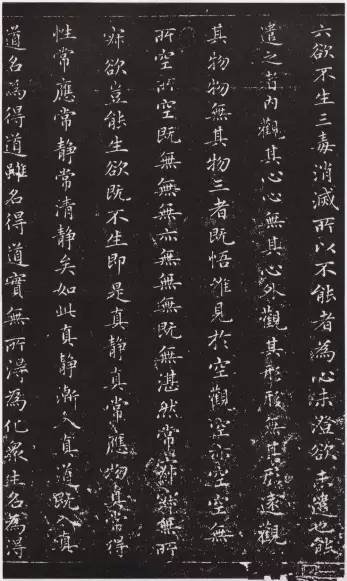 六欲不生三毒消滅所以不能者為心未澄欲未遣也能
遣之者內觀其心心無其心外觀其形形無其形遠觀
其物物無其物三者既悟唯見於空觀空亦空空無
所空所空既無無無亦無無無既無湛然常寂寂無所
寂欲豈能生欲既不生即是真靜真常應物真常得
性常應常靜常清靜矣如此真靜漸入真道既入真
道名為得道雖名得道實無所得為化眾生名為得